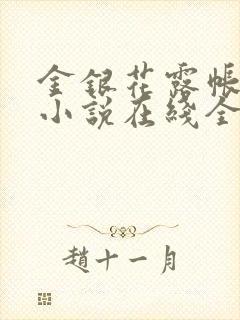 金銀花露帳
小説在綫全
趙十一月